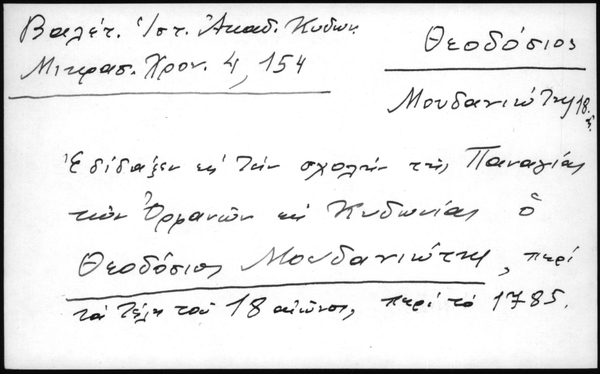 Βαλέτ. Ἱστ. Ἀκαδ. Κυδων.
Μικρασ. Χρον. 4, 154
Θεοδόσιος
Μουδανιώτης 18.
Ἐδίδαξεν εἰς τὴν σχολὴν τῆς Παναγίας
τῶν Ὀρφανῶν εἰς Κυδωνίας ὁ
Θεοδόσιος Μουδανιώτης, περὶ
τὰ τέλη τοῦ 18 αἰῶνος, περὶ τὸ 1785.